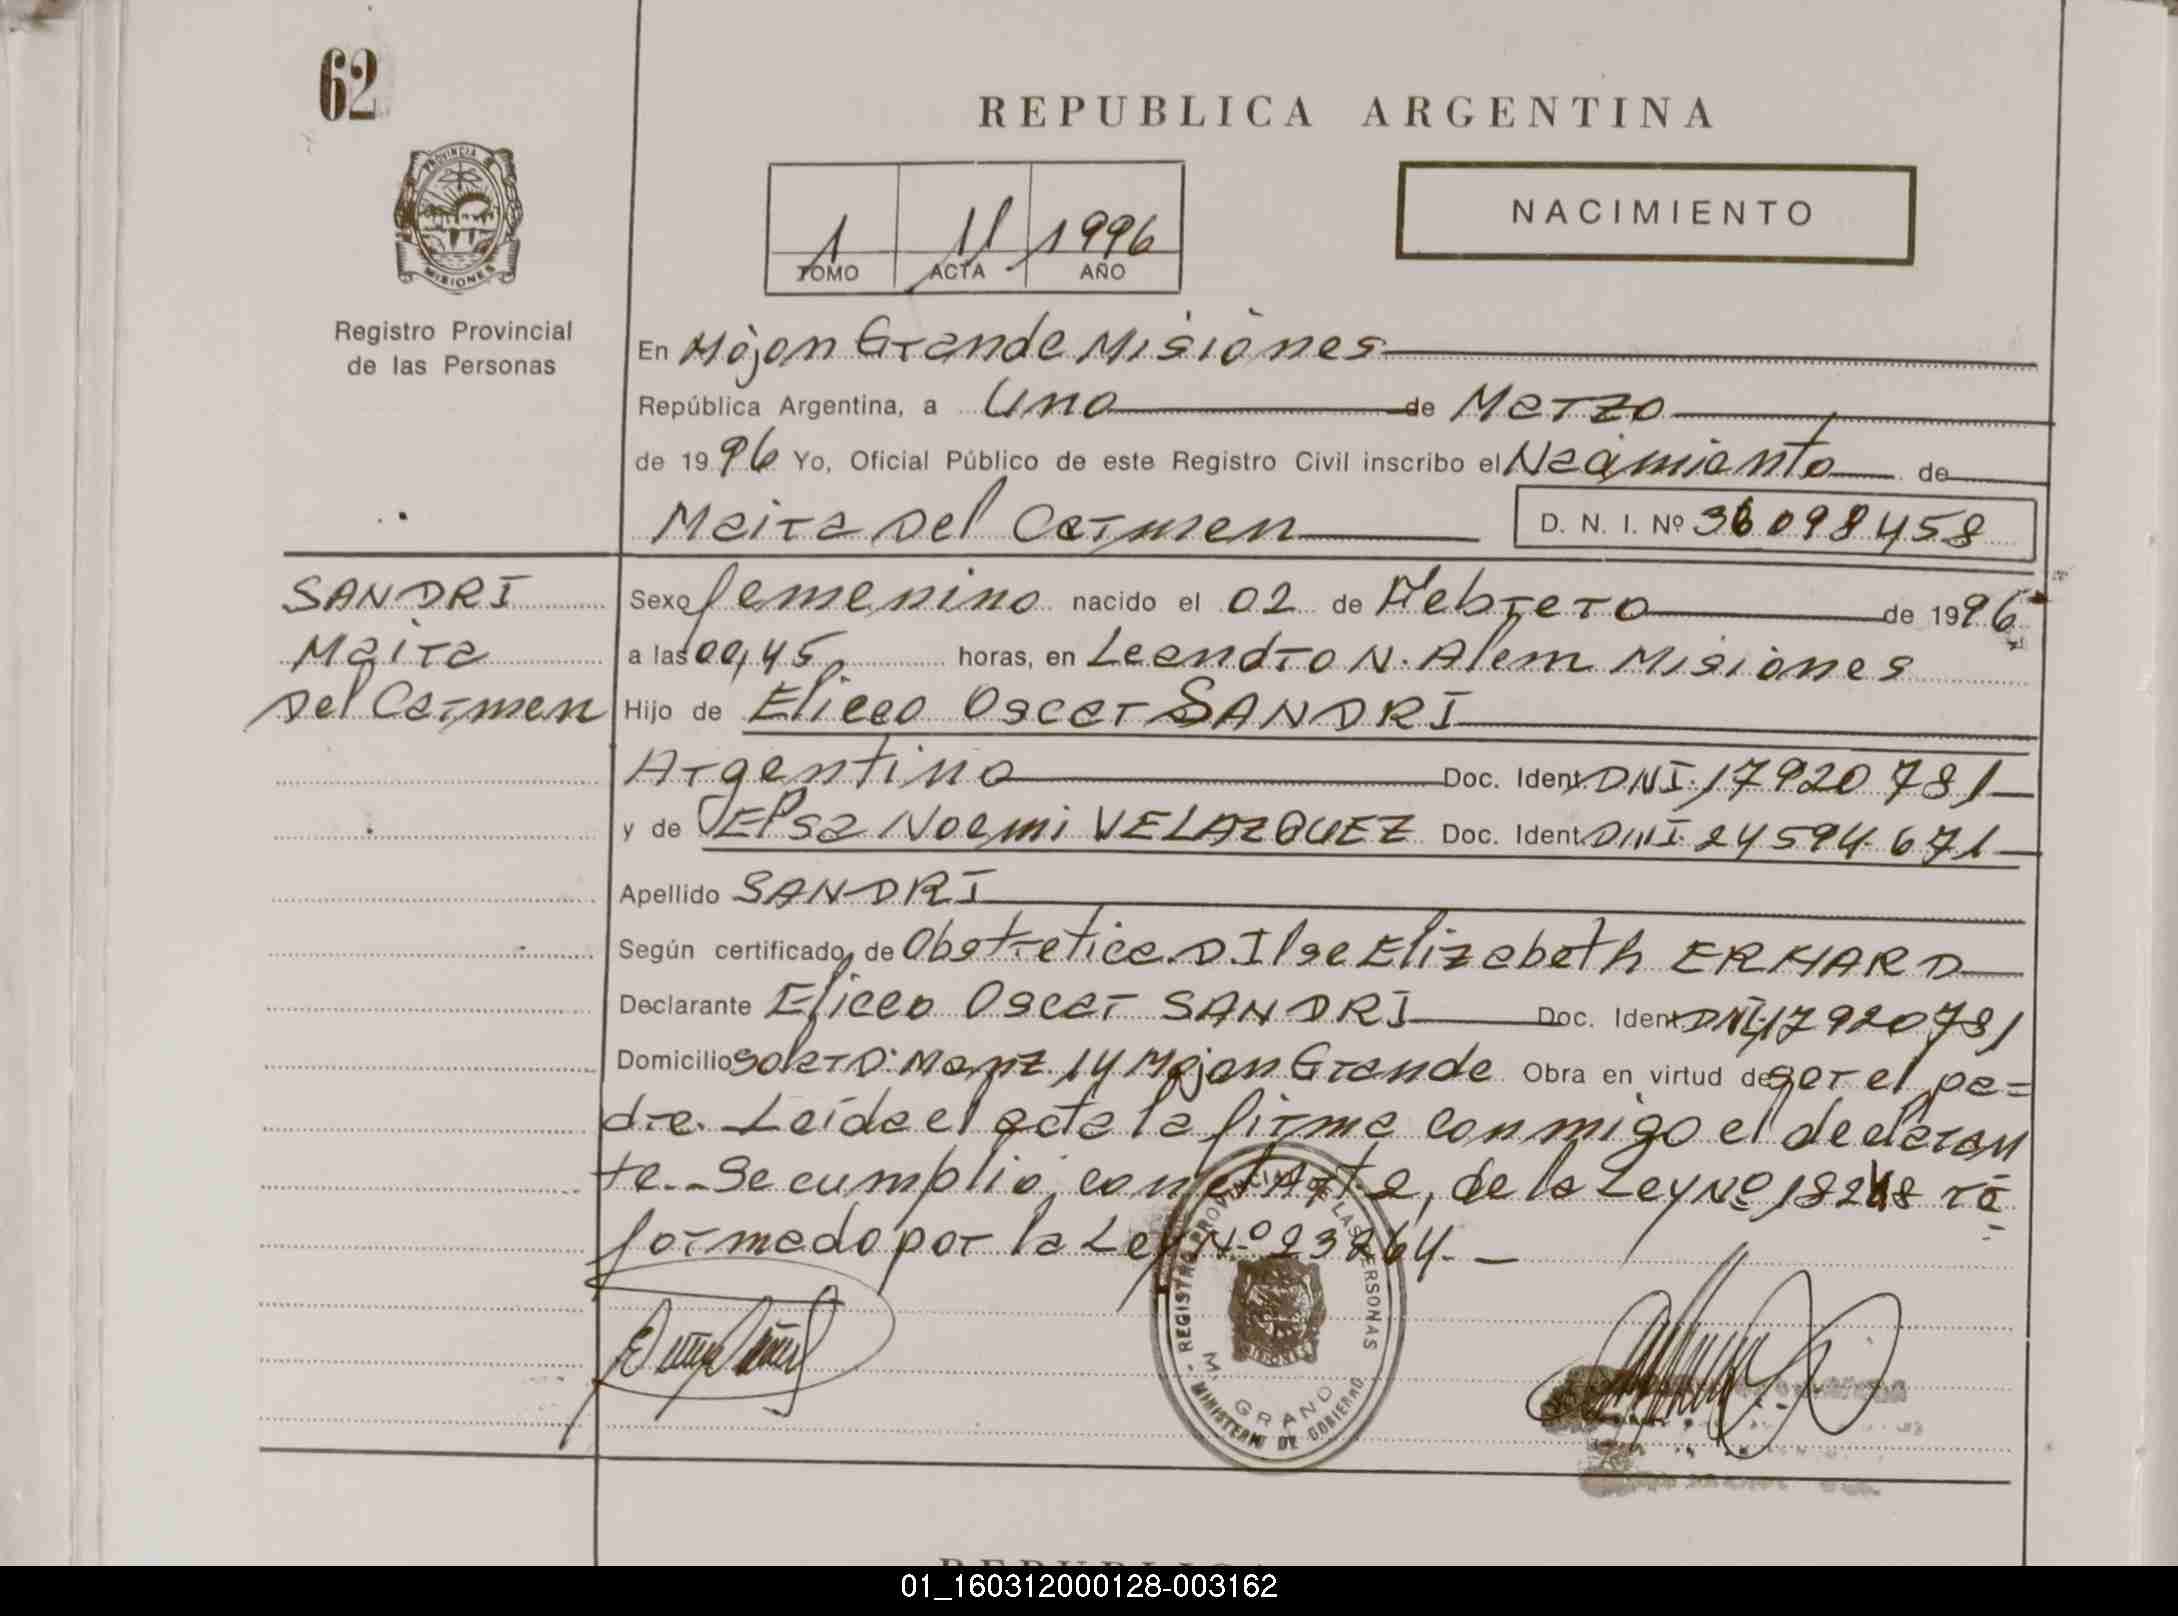 62
REPUBLICA ARGENTINA
PROVINCIA DE
MISIONES
Registro Provincial
de las Personas
1 11 1996
TOMO ACTA AÑO
NACIMIENTO
En Mojon Grande Misiones
República Argentina, a Uno de Marzo
de 1996 Yo, Oficial Público de este Registro Civil inscribo el Nacimiento de
Maira Del Carmen D. N. I. Nº 36098458
SANDRI
Maira
Del Carmen
Sexo femenino nacido el 02 de Febrero de 1996
a las 00,45 horas, en Leandro N. Alem Misiones
Hijo de Eliceo Oscar SANDRI
Argentino Doc. Ident. DNI. 17920781
y de Elsa Noemi VELAZQUEZ Doc. Ident. DNI. 24594.671
Apellido SANDRI
Según certificado de Obstretica D. Ilse Elizabeth ERHARD
Declarante Eliceo Oscar SANDRI Doc. Ident. DNI. 17920781
Domicilio Solar D. Manz. 14 Mojon Grande Obra en virtud de ser el pa=
dre. Leida el acta la firma conmigo el declaran
te.- Se cumplio con el Art. 2, de la Ley Nº 18248 re
formado por la Ley Nº 23264.-
REGISTRO PROVINCIAL DE LAS PERSONAS
M. GRANDE
MINISTERIO DE GOBIERNO
01_160312000128-003162